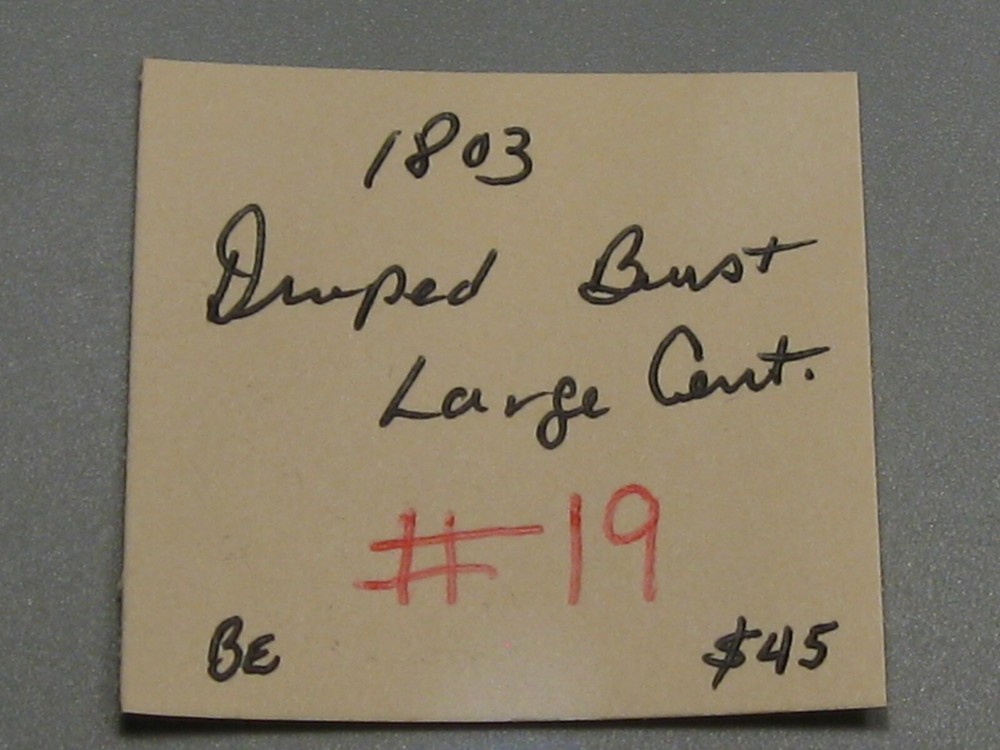 1803
Draped Bust
Large Cent.
#19
BE $45